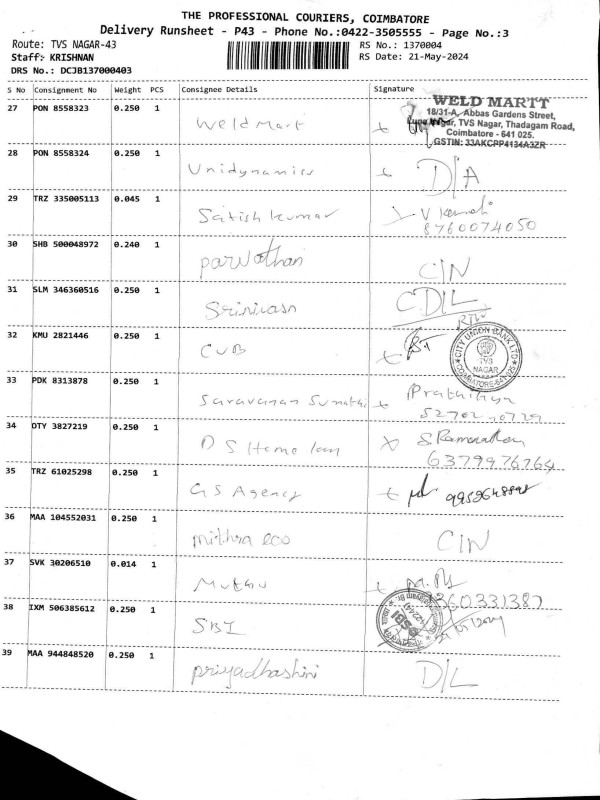 THE PROFESSIONAL COURIERS, COIMBATORE
Delivery Runsheet - P43 - Phone No.:0422-3505555 - Page No.:3
Route: TVS NAGAR-43
RS No.: 1370004
Staff: KRISHNAN
RS Date: 21-May-2024
DRS No.: DCJB137000403
S No Consignment No Weight PCS Consignee Details Signature
27 PON 8558323 0.250 1 Weld Mart
WELD MARTT
18/31-A, Abbas Gardens Street,
TVS Nagar, Thadagam Road,
Coimbatore - 641 025.
GSTIN: 33AKCPP4134A3ZR
28 PON 8558324 0.250 1 Unidynamics D/A
29 TRZ 335005113 0.045 1 Satish kumar V
8760074050
30 SHB 500048972 0.240 1 parvathan C/N
31 SLM 346360516 0.250 1 Srinivasn CD/L
32 KMU 2821446 0.250 1 CUB
CITY UNION BANK LTD
TVS
NAGAR
COIMBATORE-641 025
33 PDK 8313878 0.250 1 Saravanan Sumathi
34 OTY 3827219 0.250 1 D S Home loan S. Ramanathan
6379976764
35 TRZ 61025298 0.250 1 GS Agency
36 MAA 104552031 0.250 1 mithra eco C/N
37 SVK 30206510 0.014 1 Muthu
38 IXM 506385612 0.250 1 SBI
SBI
39 MAA 944848520 0.250 1 priyadhashini D/L